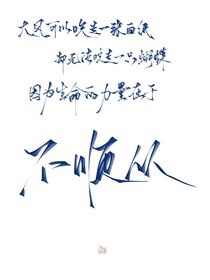 大风可以吹走一张白纸
却无法吹走一只蝴蝶
因为生命的力量在于
不顺从